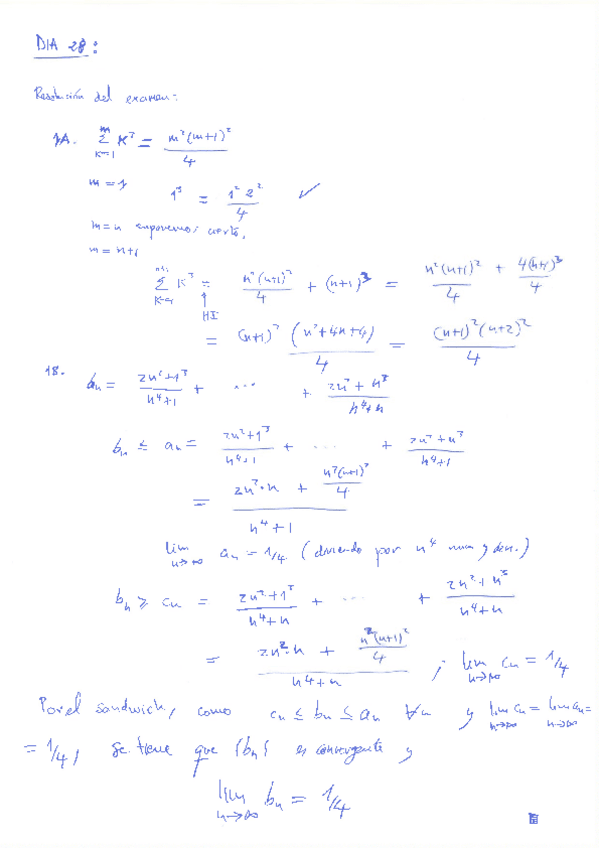 DIA 28:
Resolución del examen:
1A. m Σ K=1 K³ = m²(m+1)² / 4
m=1 1³ = 1² 2² / 4 ✓
m=n suponemos cierto,
m=n+1
n+1 Σ K=1 K³ = n²(n+1)² / 4 + (n+1)³ = n²(n+1)² / 4 + 4(n+1)³ / 4
↑ HI
= (n+1)² (n²+4n+4) / 4 = (n+1)²(n+2)² / 4
1B. bn = 2n²+1³ / n⁴+1 + ... + 2n²+n³ / n⁴+n
bn ≤ an = 2n²+1³ / n⁴+1 + ... + 2n²+n³ / n⁴+1
= 2n²·n + n²(n+1)² / 4 / n⁴+1
lim n→∞ an = 1/4 (dividiendo por n⁴ num y den.)
bn ≥ cn = 2n²+1³ / n⁴+n + ... + 2n²+n³ / n⁴+n
= 2n²·n + n²(n+1)² / 4 / n⁴+n ; lim n→∞ cn = 1/4
Por el sandwich, como cn ≤ bn ≤ an ∀n y lim n→∞ cn = lim n→∞ an =
= 1/4, se tiene que {bn} es convergente y
lim n→∞ bn = 1/4